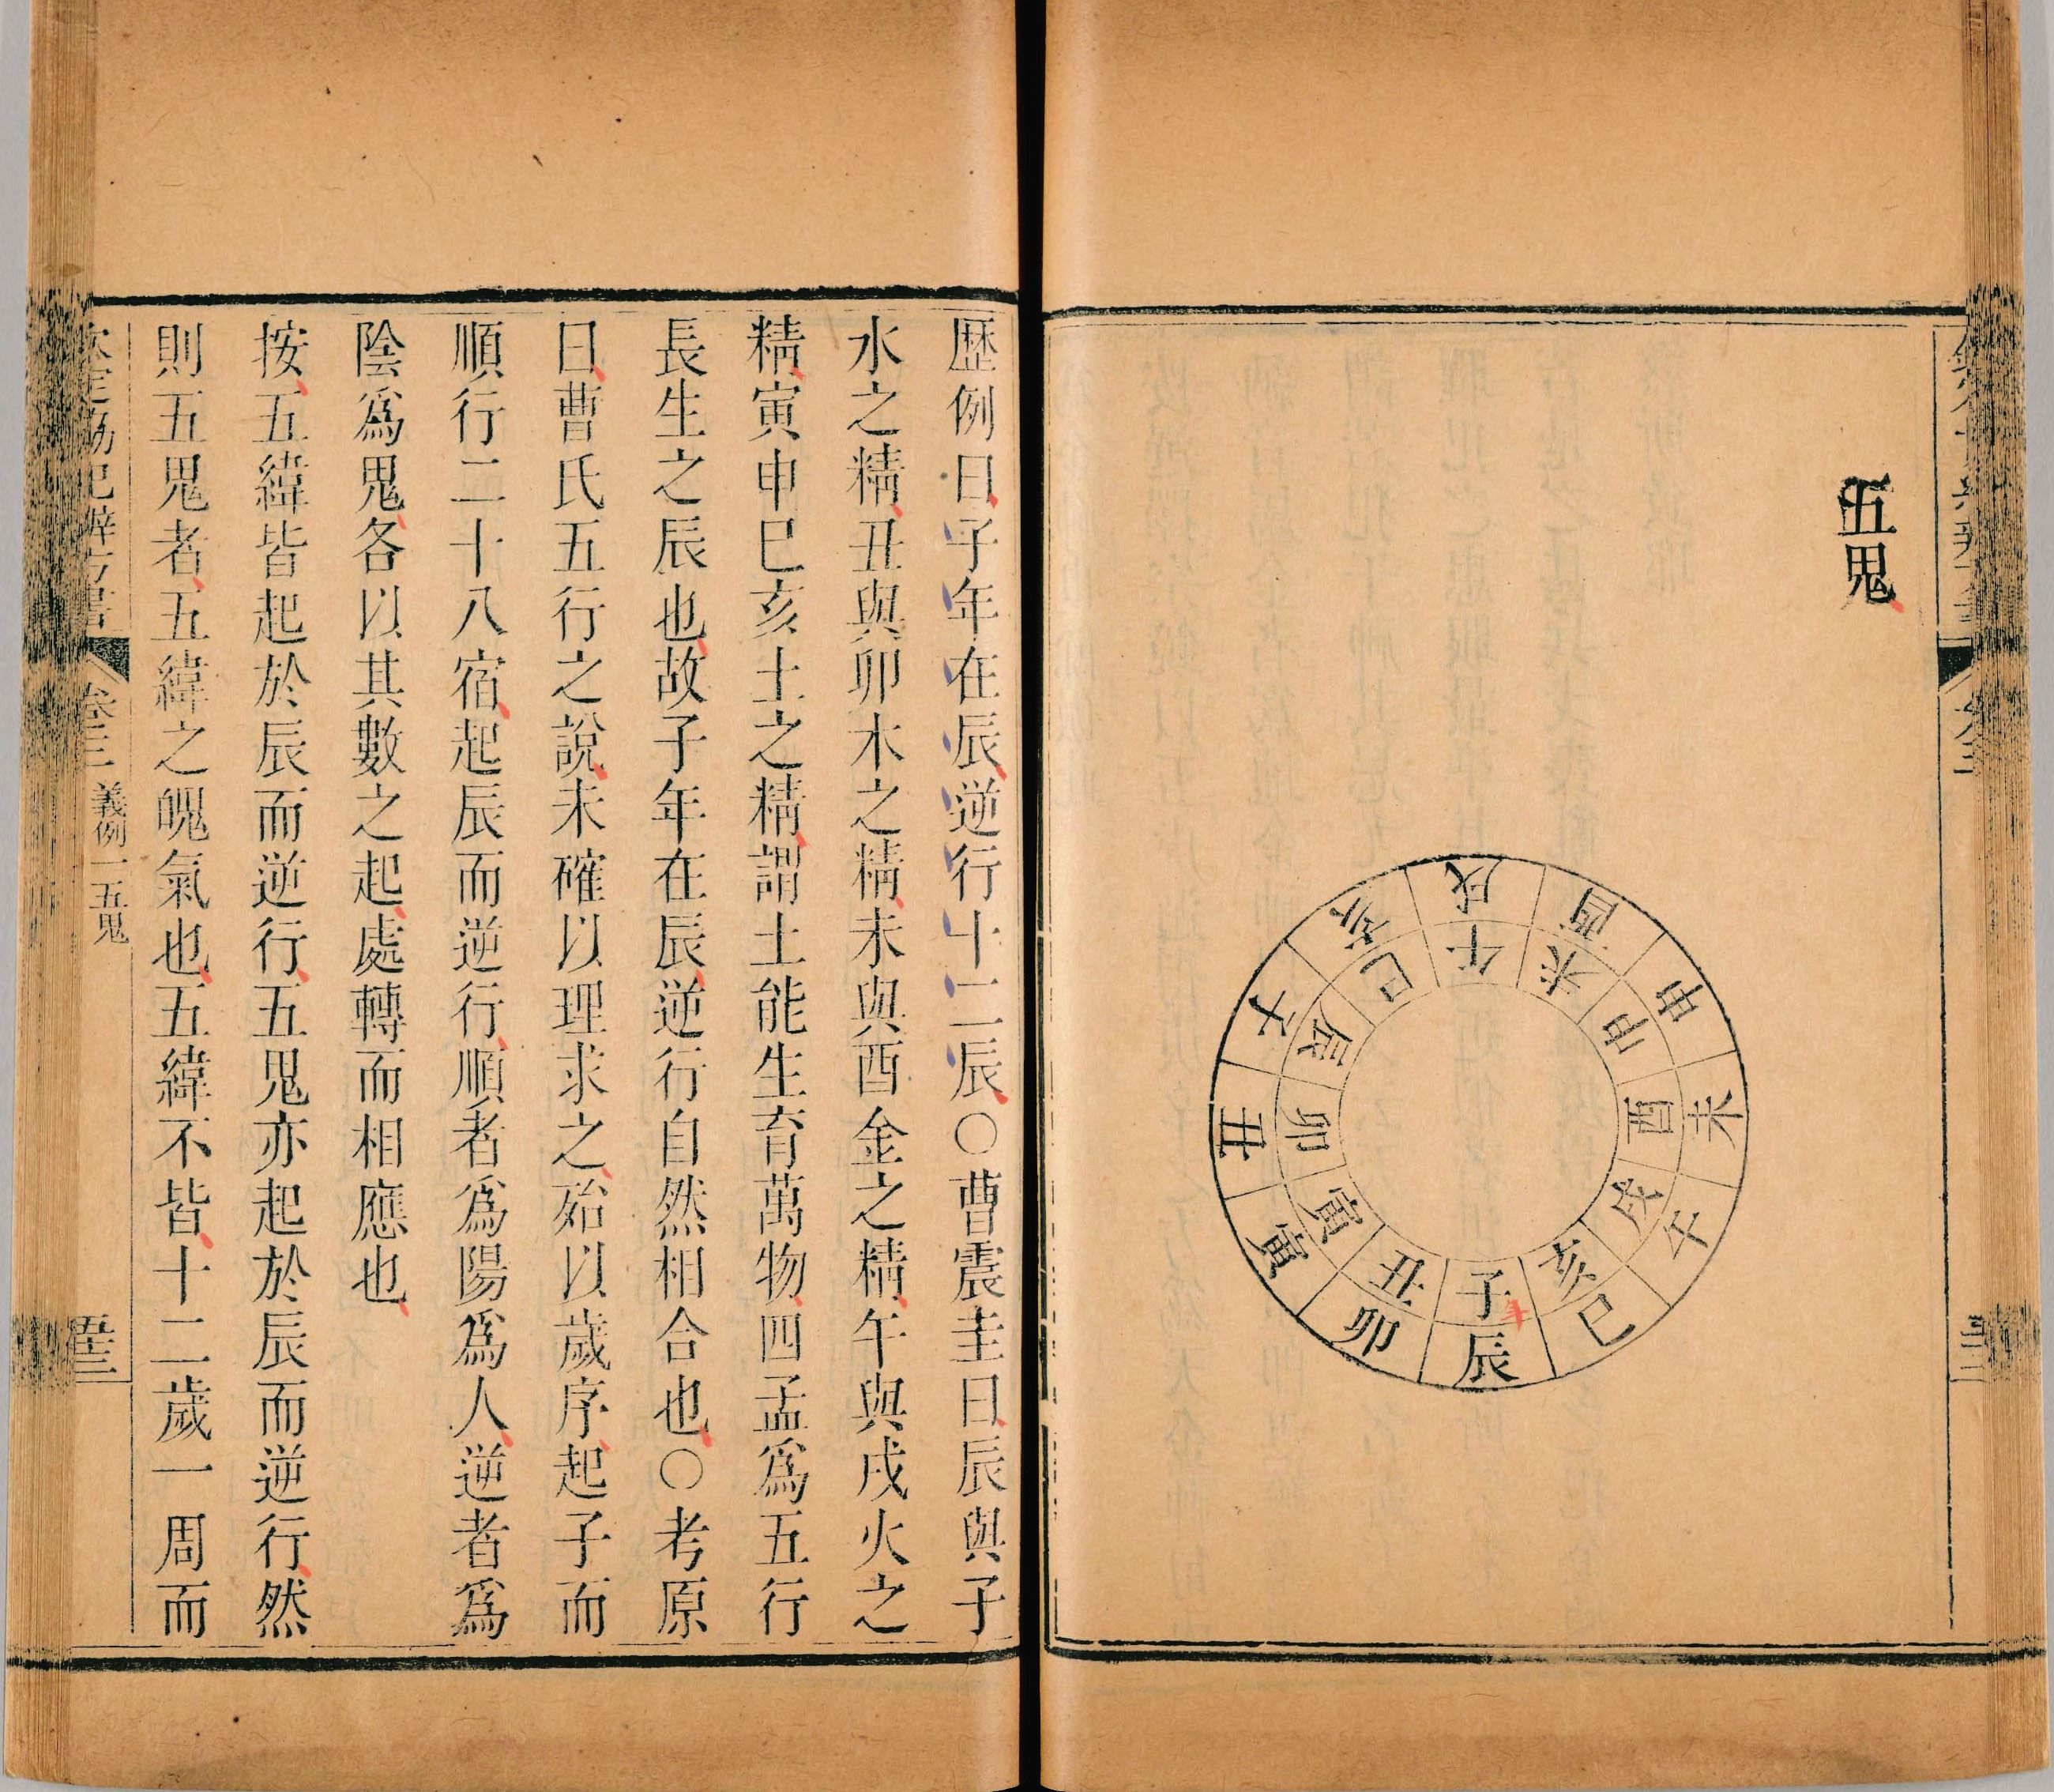 五鬼
戌
酉
申
未
午
巳
辰
卯
寅
丑
子
亥
午
未
申
酉
戌
亥
子
年
丑
寅
卯
辰
巳
歷例曰子年在辰逆行十二辰○曹震圭曰辰與子
水之精丑與卯木之精未與酉金之精午與戌火之
精寅申巳亥土之精謂土能生育萬物四孟爲五行
長生之辰也故子年在辰逆行自然相合也○考原
曰曹氏五行之說未確以理求之殆以歲序起子而
順行二十八宿起辰而逆行順者爲陽爲人逆者爲
陰爲鬼各以其數之起處轉而相應也
按五緯皆起於辰而逆行五鬼亦起於辰而逆行然
則五鬼者五緯之魄氣也五緯不皆十二歲一周而
卷三
義例一五鬼